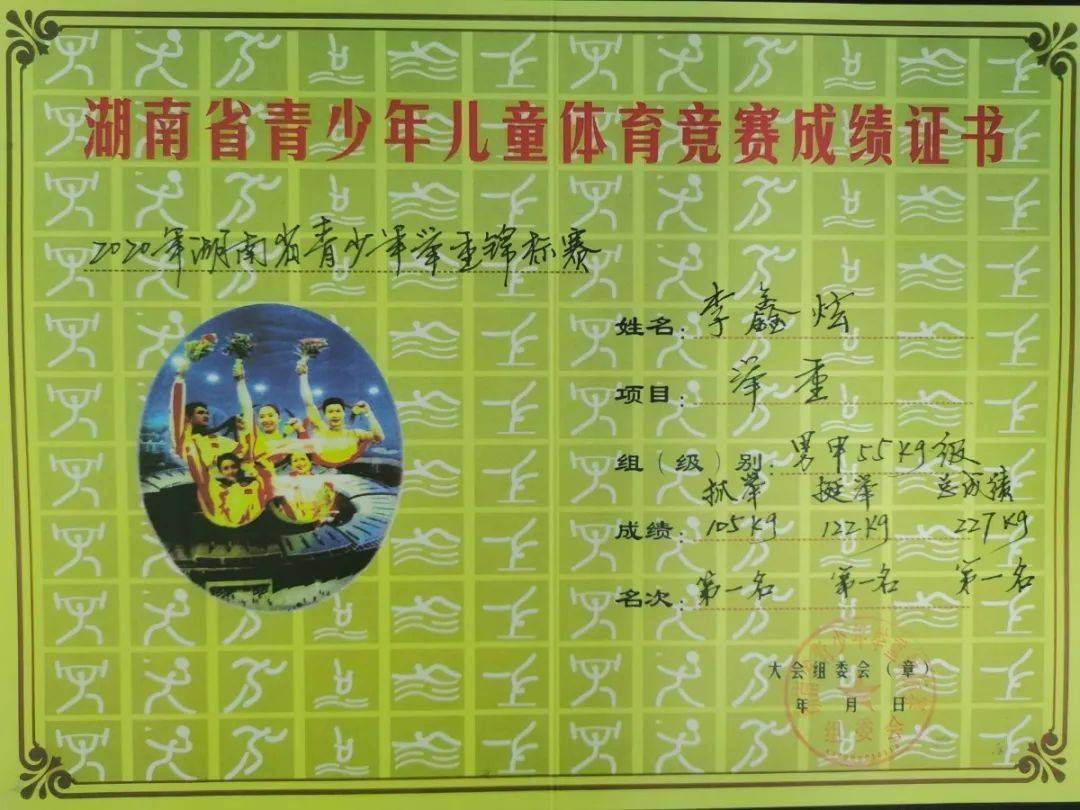 湖南省青少年儿童体育竞赛成绩证书
2020年湖南省青少年举重锦标赛
姓名：李鑫炫
项目：举重
组（级）别：男甲55kg级
抓举 挺举 总成绩
成绩：105kg 122kg 227kg
名次：第一名 第一名 第一名
大会组委会（章）
年 月 日
组委会